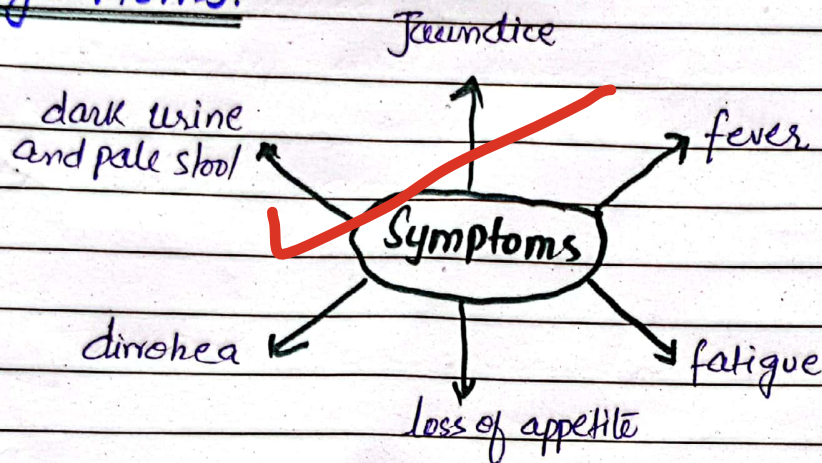 Jaundice
dark urine
and pale stool
fever
Symptoms
dirrohea
fatigue
loss of appetite